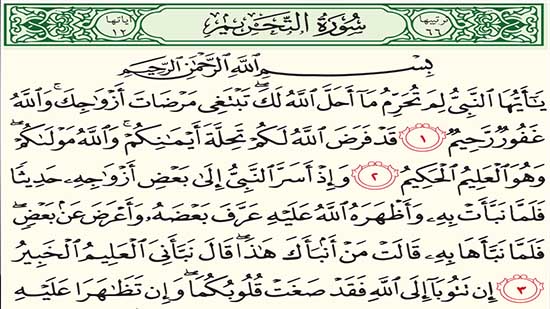 ترتيبها ٦٦ سُورَةُ التَّحْرِيمِ آياتها ١٢
بِسْمِ اللَّهِ الرَّحْمَٰنِ الرَّحِيمِ
يَٰٓأَيُّهَا ٱلنَّبِيُّ لِمَ تُحَرِّمُ مَآ أَحَلَّ ٱللَّهُ لَكَۖ تَبْتَغِي مَرْضَاتَ أَزْوَٰجِكَۚ وَٱللَّهُ
غَفُورٌ رَّحِيمٌ ١ قَدْ فَرَضَ ٱللَّهُ لَكُمْ تَحِلَّةَ أَيْمَٰنِكُمْۚ وَٱللَّهُ مَوْلَىٰكُمْۖ
وَهُوَ ٱلْعَلِيمُ ٱلْحَكِيمُ ٢ وَإِذْ أَسَرَّ ٱلنَّبِيُّ إِلَىٰ بَعْضِ أَزْوَٰجِهِۦ حَدِيثًا
فَلَمَّا نَبَّأَتْ بِهِۦ وَأَظْهَرَهُ ٱللَّهُ عَلَيْهِ عَرَّفَ بَعْضَهُۥ وَأَعْرَضَ عَنۢ بَعْضٍۖ
فَلَمَّا نَبَّأَهَا بِهِۦ قَالَتْ مَنْ أَنۢبَأَكَ هَٰذَاۖ قَالَ نَبَّأَنِيَ ٱلْعَلِيمُ ٱلْخَبِيرُ
٣ إِن تَتُوبَآ إِلَى ٱللَّهِ فَقَدْ صَغَتْ قُلُوبُكُمَاۖ وَإِن تَظَٰهَرَا عَلَيْهِ